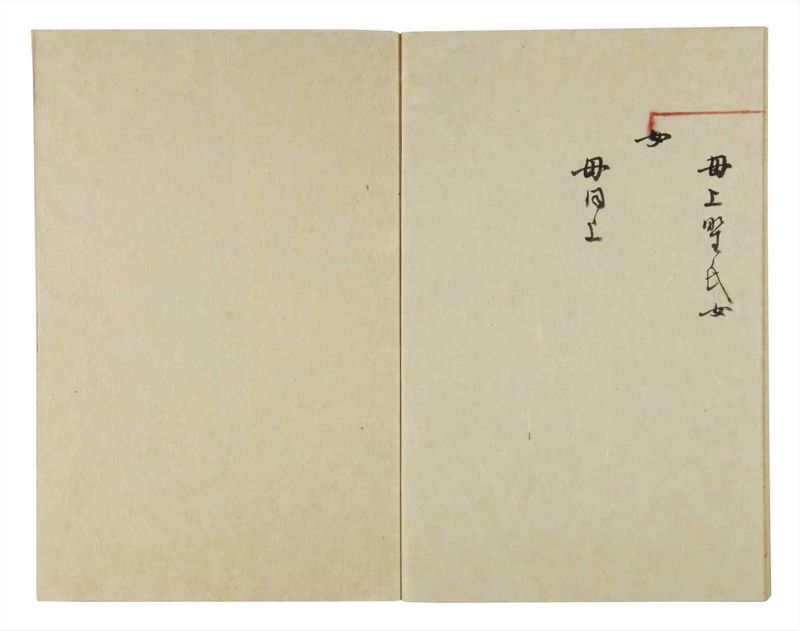 母上野氏女
女
母同上